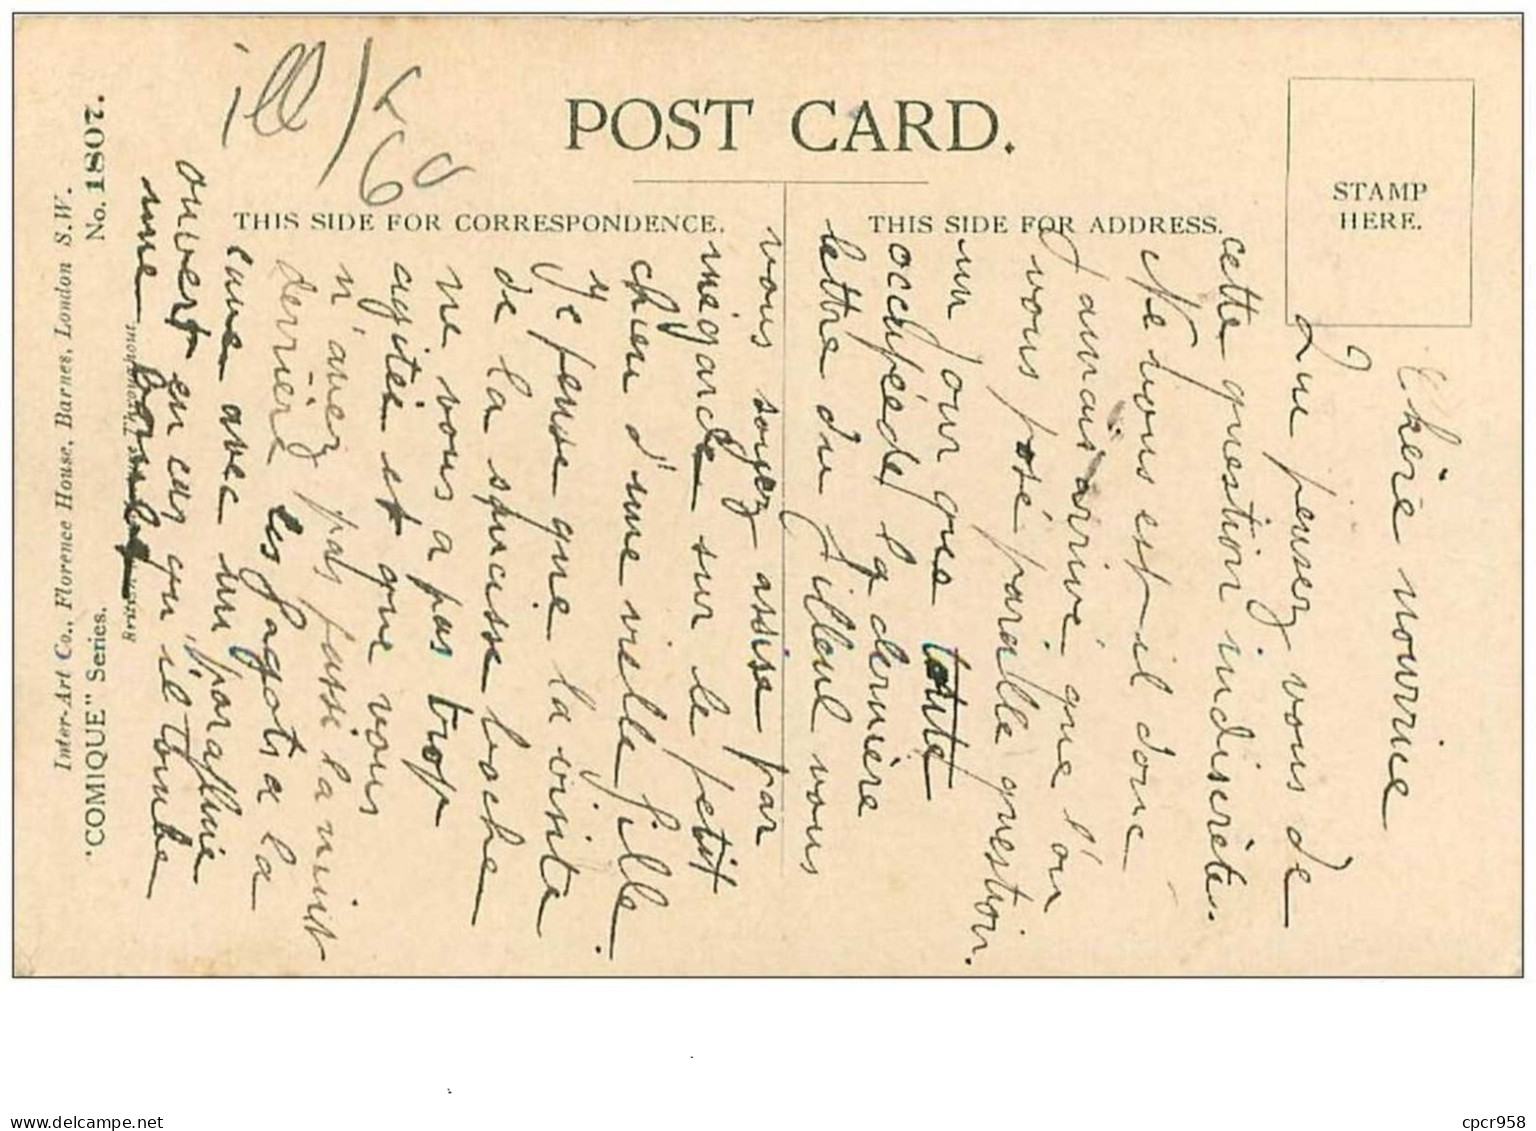 ill/K60
POST CARD.
THIS SIDE FOR CORRESPONDENCE.
THIS SIDE FOR ADDRESS.
STAMP
HERE.
Chère nourrice
Que pensez vous de
cette question indiscrète.
Ne vous est-il donc
jamais arrivé que l'on
vous posé pareille question.
un jour que toute
occupée de la dernière
lettre du filleul vous
vous soyez assise par
mégarde sur le petit
chien d'une vieille fille.
Je pense que la visite
de la saucisse boche
ne vous a pas trop
agitée et que vous
n'avez pas passé la nuit
derrière les fagots a la
cave avec un parapluie
ouvert en cas qu'il tombe
une bombe
Inter-Art Co., Florence House, Barnes, London S.W.
"COMIQUE" Series.
No. 1807.
British Manufacture
cpcr958